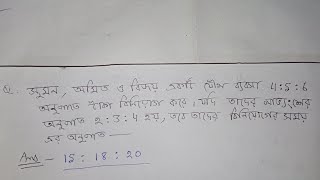 Q. সুমন, অমিত ও বিজয় একটি যৌথ ব্যবসা 4:5:6
অনুপাতে বিনিয়োগ করে। যদি তাদের লভ্যাংশের
অনুপাত 2:3:4 হয়, তবে তাদের বিনিয়োগের সময়
এর অনুপাত —
Ans - 15 : 18 : 20